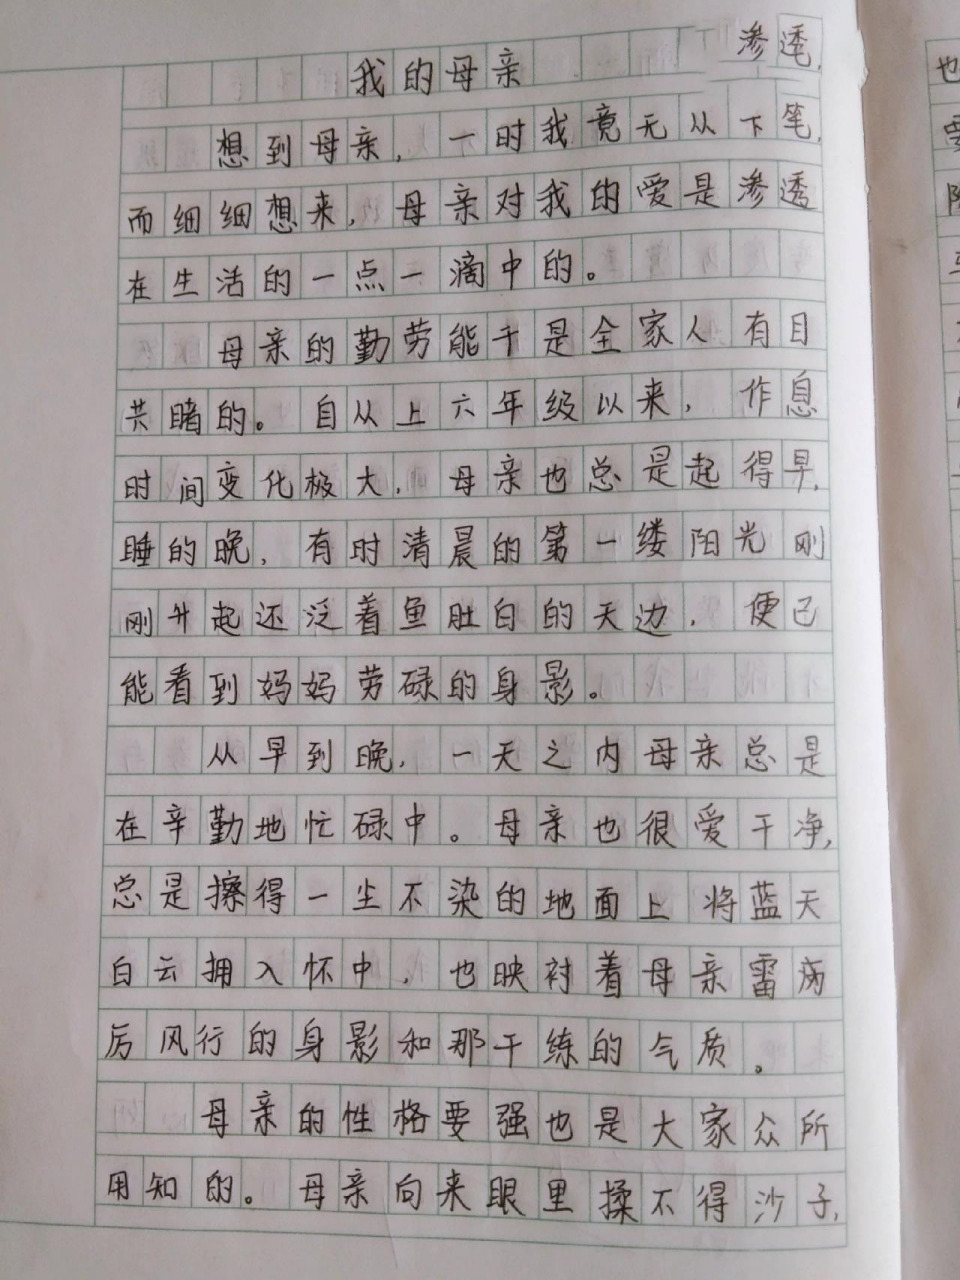 渗透,
我的母亲
想到母亲,一时我竟无从下笔,
而细细想来,母亲对我的爱是渗透
在生活的一点一滴中的。
母亲的勤劳能干是全家人有目
共睹的。自从上六年级以来,作息
时间变化极大,母亲也总是起得早,
睡的晚,有时清晨的第一缕阳光刚
刚升起还泛着鱼肚白的天边,便已
能看到妈妈劳碌的身影。
从早到晚,一天之内母亲总是
在辛勤地忙碌中。母亲也很爱干净,
总是擦得一尘不染的地面上将蓝天
白云拥入怀中,也映衬着母亲雷病
厉风行的身影和那干练的气质。
母亲的性格要强也是大家众所
用知的。母亲向来眼里揉不得沙子,
也
要